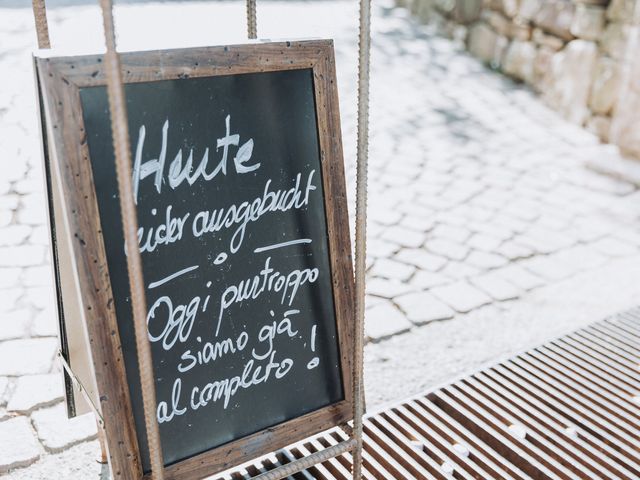 Heute
leider ausgebucht
- o -
Oggi purtroppo
siamo già
al completo!